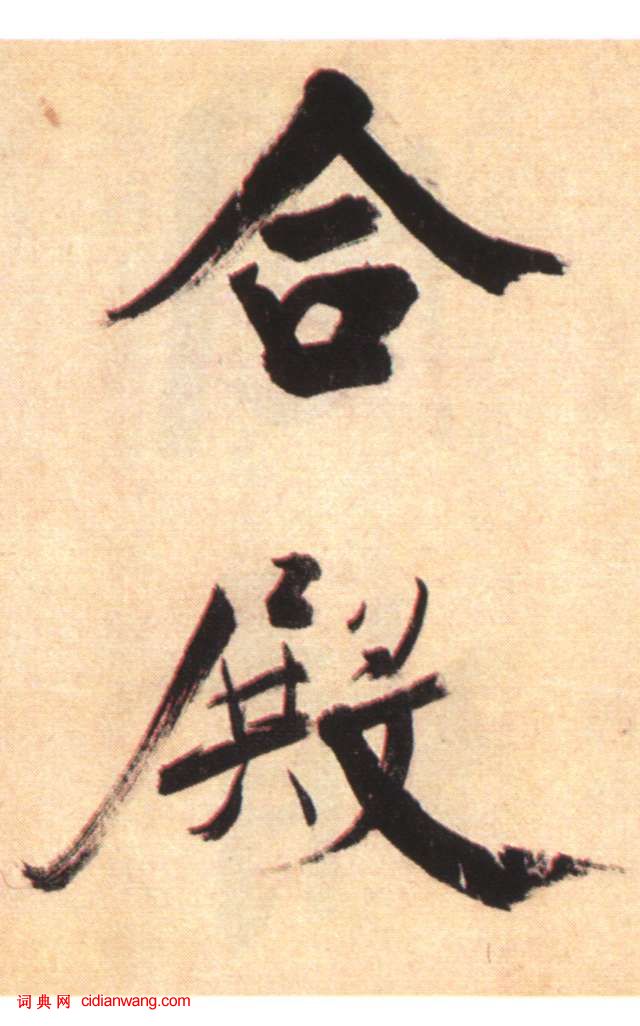 合
殿
词典网 cidianwang.com